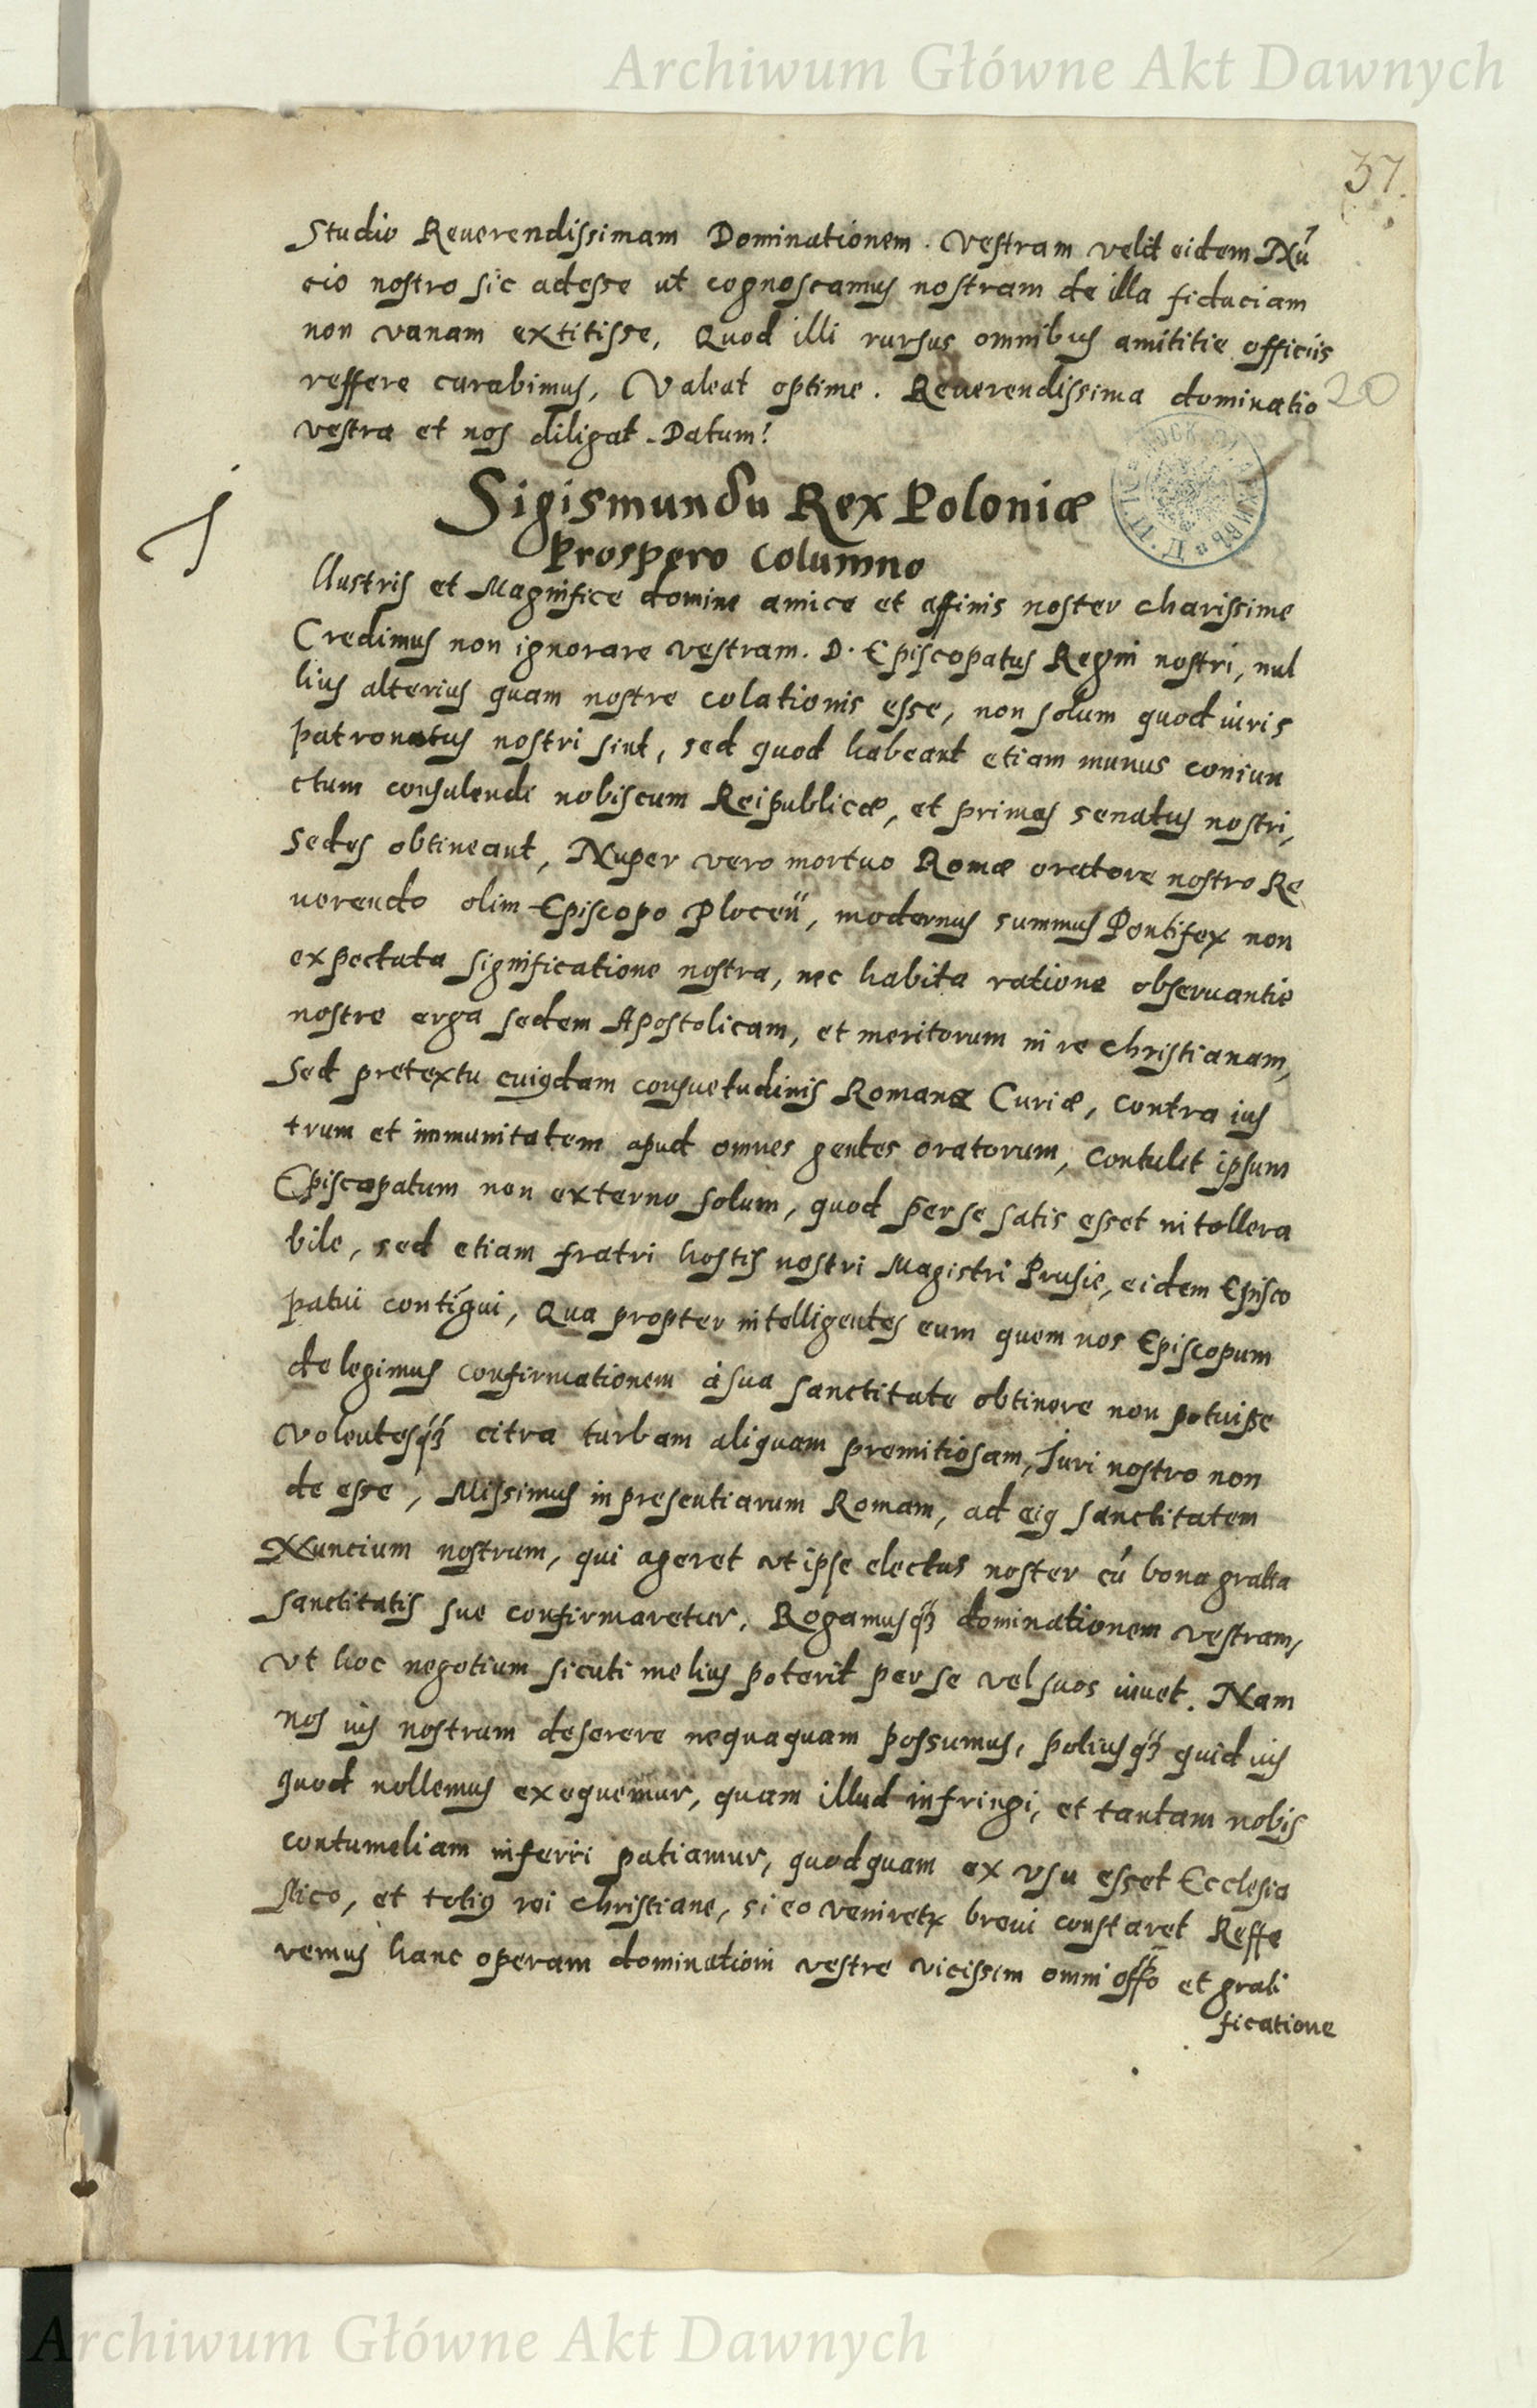 Archiwum Główne Akt Dawnych
37.
Studio Reuerendissimam Dominationem. Vestram velit eidem Nú
cio nostro sic adesse ut cognoscamus nostram de illa fiduciam
non vanam extitisse, Quod illi rursus omnibus amititie officiis
reffere curabimus, Valeat optime. Reuerendissima dominatio
20
vestra et nos diligat. Datum!
Sigismundu Rex Poloniæ
Prospero Columno
J
llustris et Magnifice domine amice et affinis noster charissime
Credimus non ignorare vestram. D. Episcopatus Regni nostri, nul
lius alterius quam nostre colationis esse, non solum quod iuris
patronatus nostri sint, sed quod habeant etiam munus coniun
ctum consulendi nobiscum Reipublicæ, et primas senatus nostri,
Sedes obtineant, Nuper vero mortuo Romæ oratore nostro Re
uerendo olim Episcopo Plocen̄, modernus summus Pontifex non
expectata significatione nostra, nec habita ratione obseruantie
nostre erga sedem Apostolicam, et meritorum in re christianam,
Sed pretextu cuiꝰdam consuetudinis Romanæ Curiæ, contra ius
trum et immunitatem apud omnes gentes oratorum, contulit ipsum
Episcopatum non externo solum, quod per se satis esset intollera
bile, sed etiam fratri hostis nostri Magistri Prusie, eidem Episco
patui contigui, Qua propter intelligentes eum quem nos Episcopum
delegimus confirmationem à sua sanctitate obtinere non potuisse
Volentesq́ꝫ citra turbam aliquam premitiosam, Juri nostro non
de esse, Missimus in presentiarum Romam, ad eiꝰ sanctitatem
Nuncium nostrum, qui ageret vt ipse electus noster cú bona gratia
sanctitatis sue confirmaretur. Rogamusq́ꝫ dominationem vestram,
vt hoc negotium sicuti melius poterit per se vel suos iuuet. Nam
nos ius nostrum deserere nequaquam possumus, potiusq́ꝫ quid uis
quod nollemus exequemur, quam illud infringi, et tantam nobis
contumeliam inferri patiamur, quod quam ex vsu esset Ecclesia
stico, et totiꝰ rei christiane, si eo veniretꝝ breui constaret Reffe
remus hanc operam dominationi vestre vicissim omni offō et grati
ficatione
Archiwum Główne Akt Dawnych